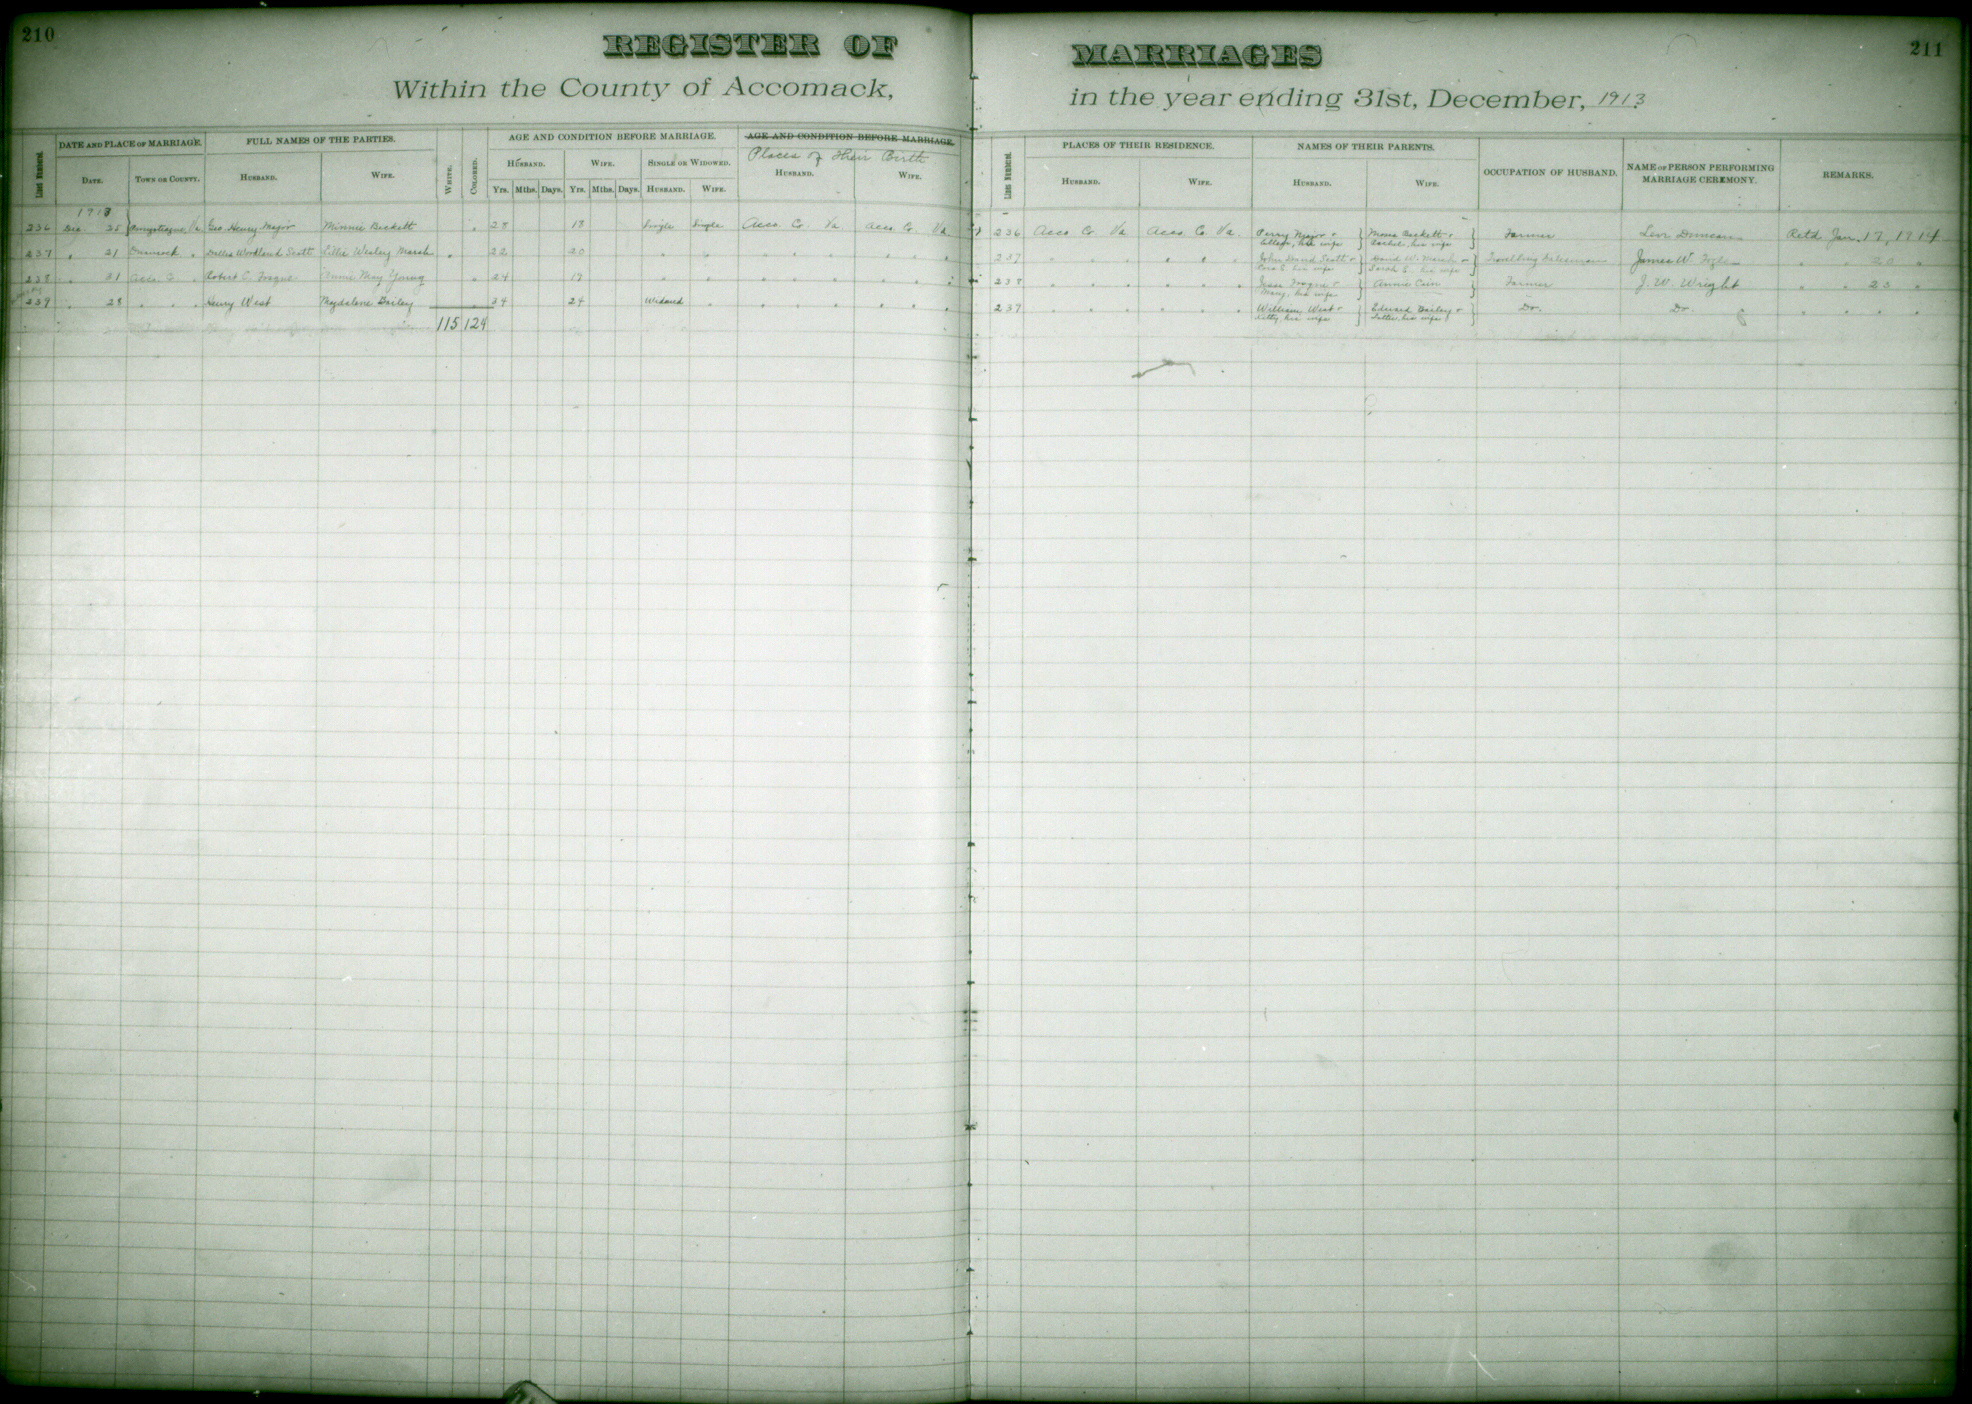 210
REGISTER OF
Within the County of Accomack,
LINE NUMBERS.
DATE AND PLACE OF MARRIAGE.
FULL NAMES OF THE PARTIES.
WHITE.
COLORED.
AGE AND CONDITION BEFORE MARRIAGE.
AGE AND CONDITION BEFORE MARRIAGE.
Places of Their Birth
DATE. TOWN OR COUNTY. HUSBAND. WIFE. HUSBAND. WIFE. SINGLE OR WIDOWED. HUSBAND. WIFE.
Yrs. Mths. Days. Yrs. Mths. Days. HUSBAND. WIFE.
1913
236 Dec. 25 Va. Geo. Henry Major Minnie Beckett " 28 18 Single Single Acco. Co. Va Acco. Co. Va.
237 " 21 Onancock " Woodland Scott Lillie Wesley Marsh " 22 20 " " " " " " " "
238 " 31 Acco. C. " Robert C. Fosque Annie May Young " 24 19 " " " " " " " "
239 " 28 " " " Henry West Magdalene Bailey 34 24 Widowed " " " " " " "
115 124
MARRIAGES
211
in the year ending 31st, December, 1913
LINE NUMBERS.
PLACES OF THEIR RESIDENCE.
NAMES OF THEIR PARENTS.
OCCUPATION OF HUSBAND.
NAME OF PERSON PERFORMING
MARRIAGE CEREMONY.
REMARKS.
HUSBAND. WIFE. HUSBAND. WIFE.
236 Acco Co. Va Acco. Co. Va. Perry Major + his wife Beckett + Rachel, his wife Farmer Levi Duncan Retd Jan. 17, 1914
237 " " " " " " John David Scott + his wife David W. Marsh + Sarah E. his wife Travelling Salesman James W. " " 20 "
238 " " " " " " Jesse Fosque + Mary, his wife Annie Cain Farmer J. W. Wright " " 23 "
239 " " " " " " William West + Kitty, his wife Edward Bailey + his wife Do. Do " " " "